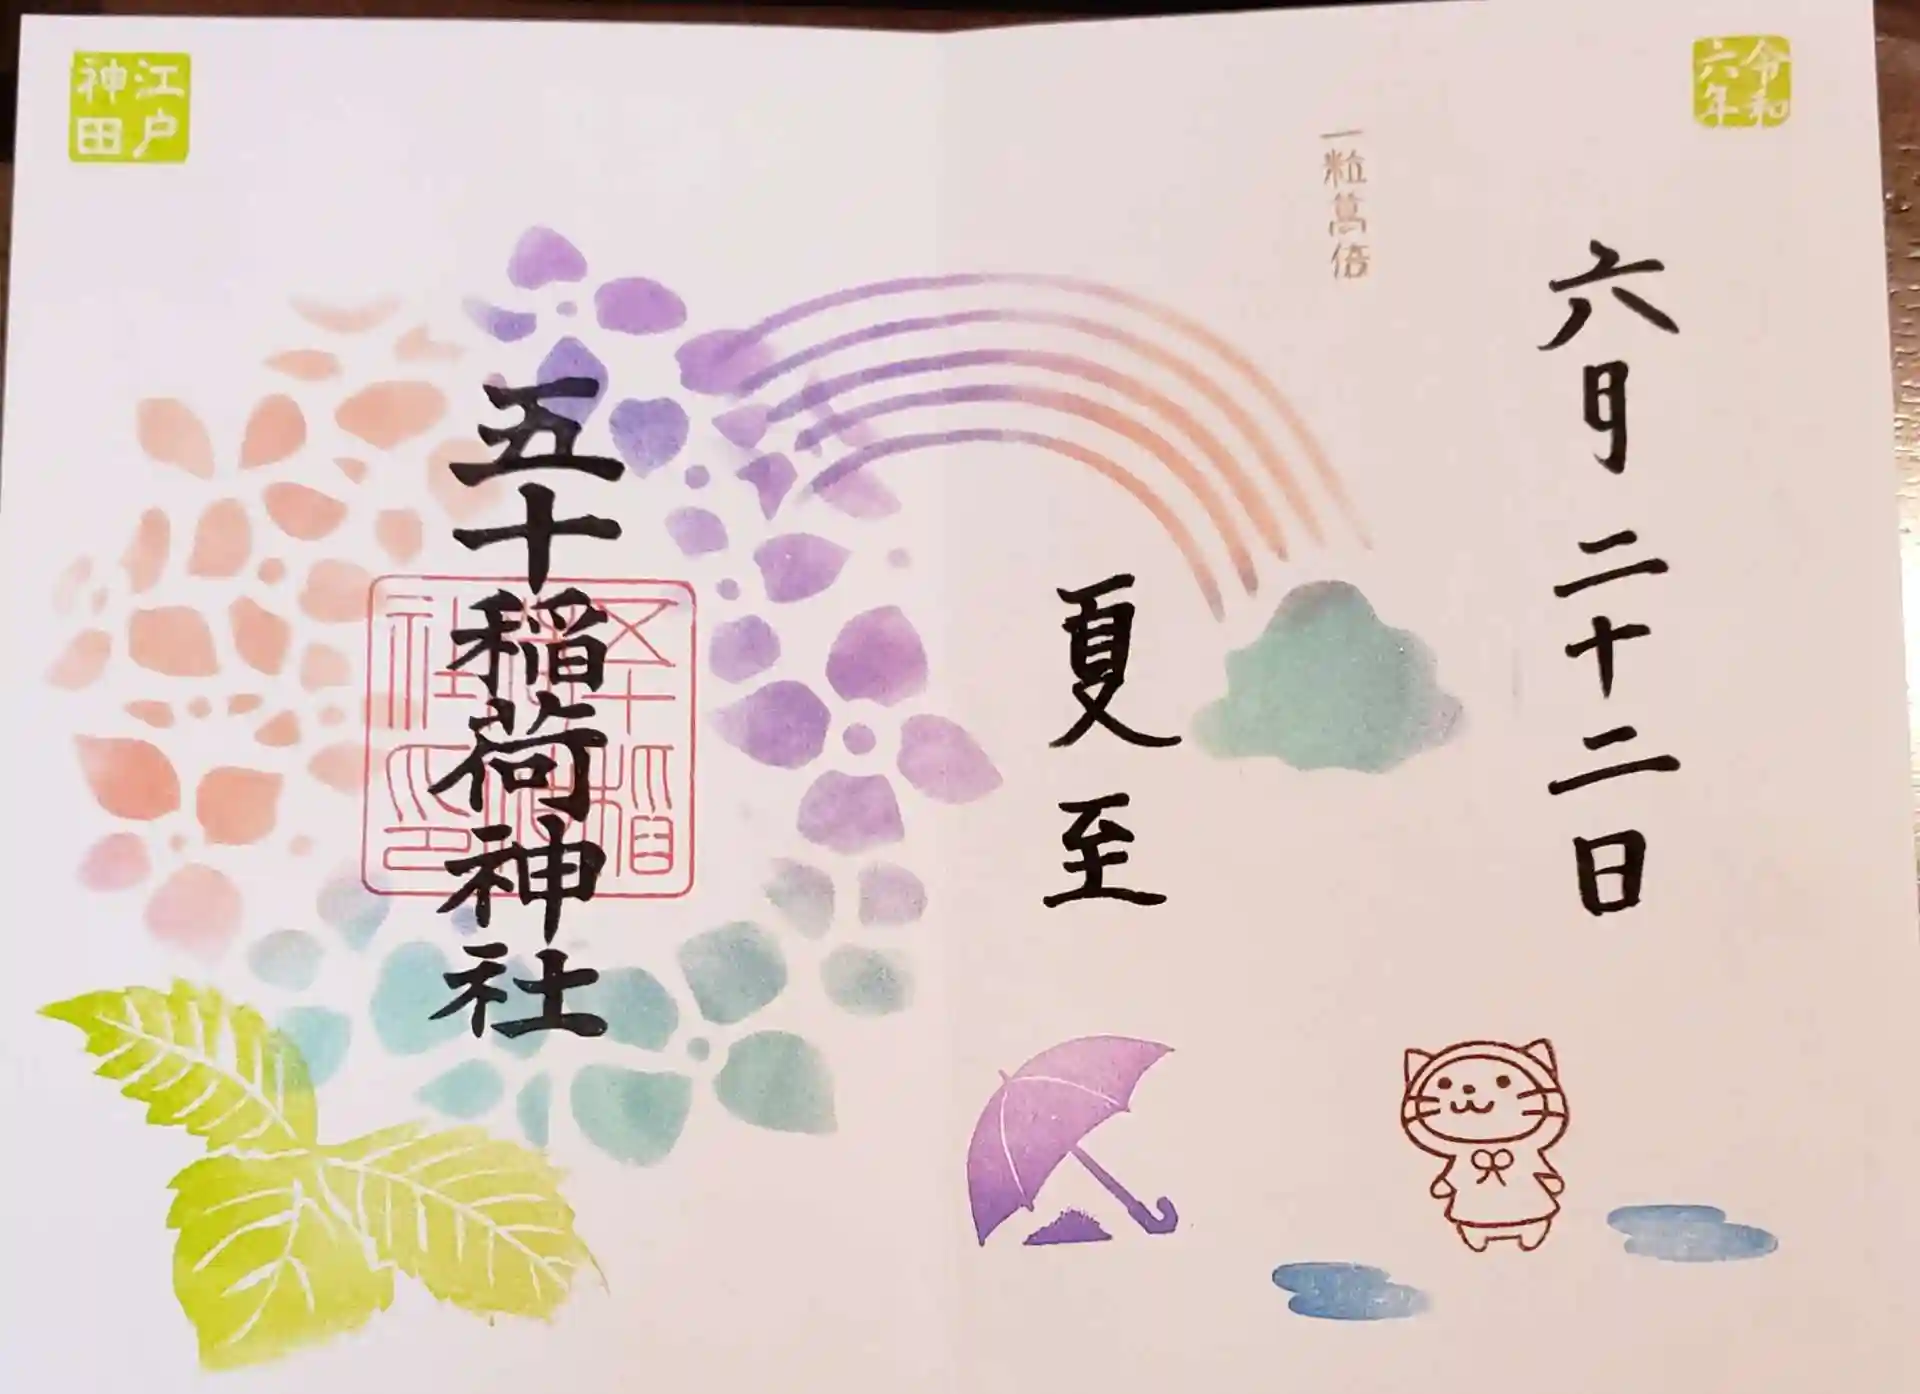 令和
六年
六月二十二日
一粒萬倍
夏至
五十稲荷神社
江戸
神田